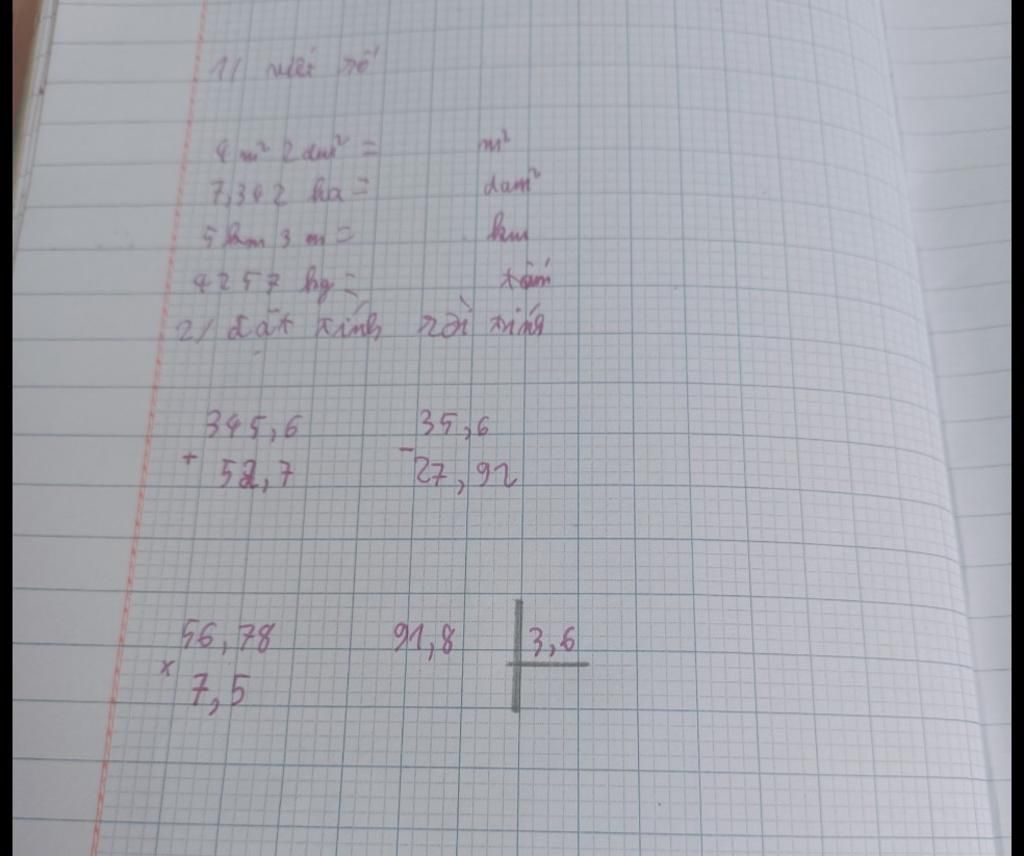 1/ viết số
4m² 2dm² = m²
7,342 ha = dam²
5km 3 m = km
4257 kg = tấn
2/ đặt tính rồi tính
345,6 35,6
+ 52,7 - 27,92
56,78 91,8 3,6
x 7,5